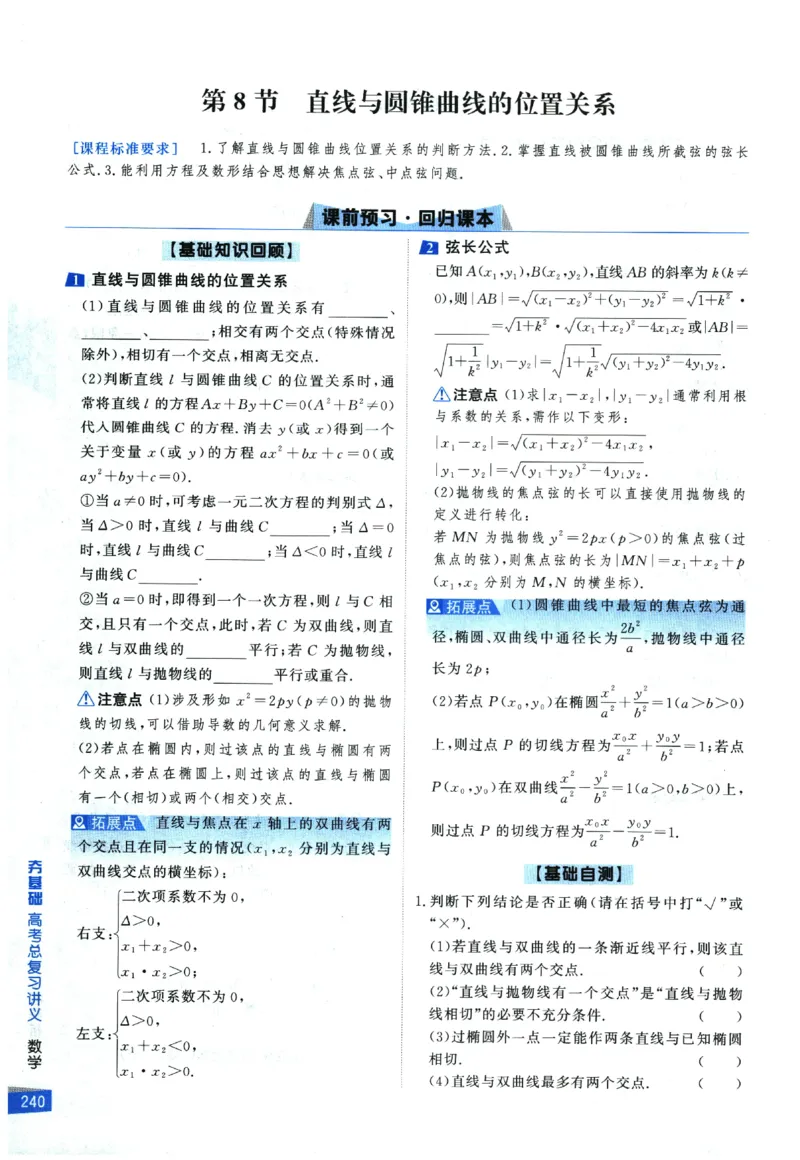 第8节 直线与圆锥曲线的位置关系
[课程标准要求] 1.了解直线与圆锥曲线位置关系的判断方法.2.掌握直线被圆锥曲线所截弦的弦长
公式.3.能利用方程及数形结合思想解决焦点弦、中点弦问题.
课前预习·回归课本
【基础知识回顾】
1 直线与圆锥曲线的位置关系
(1)直线与圆锥曲线的位置关系有______、
______、______;相交有两个交点(特殊情况
除外),相切有一个交点,相离无交点.
(2)判断直线 l 与圆锥曲线 C 的位置关系时,通
常将直线 l 的方程Ax+By+C=0(A²+B²≠0)
代入圆锥曲线 C 的方程.消去 y(或 x)得到一个
关于变量 x(或 y)的方程 ax²+bx+c=0(或
ay²+by+c=0).
①当 a≠0 时,可考虑一元二次方程的判别式 Δ,
当 Δ>0 时,直线 l 与曲线 C______;当 Δ=0
时,直线 l 与曲线 C______;当 Δ<0 时,直线 l
与曲线 C______.
②当 a=0 时,即得到一个一次方程,则 l 与 C 相
交,且只有一个交点,此时,若 C 为双曲线,则直
线 l 与双曲线的______平行;若 C 为抛物线,
则直线 l 与抛物线的______平行或重合.
⚠注意点 (1)涉及形如 x²=2py(p≠0)的抛物
线的切线,可以借助导数的几何意义求解.
(2)若点在椭圆内,则过该点的直线与椭圆有两
个交点,若点在椭圆上,则过该点的直线与椭圆
有一个(相切)或两个(相交)交点.
拓展点 直线与焦点在 x 轴上的双曲线有两
个交点且在同一支的情况(x₁,x₂ 分别为直线与
双曲线交点的横坐标):
右支:{二次项系数不为 0,
Δ>0,
x₁+x₂>0,
x₁·x₂>0;
左支:{二次项系数不为 0,
Δ>0,
x₁+x₂<0,
x₁·x₂>0.
2 弦长公式
已知 A(x₁,y₁),B(x₂,y₂),直线 AB 的斜率为 k(k≠
0),则|AB|=√((x₁-x₂)²+(y₁-y₂)²)=√(1+k²)·
______=√(1+k²)·√((x₁+x₂)²-4x₁x₂)或|AB|=
√(1+1/k²)|y₁-y₂|=√(1+1/k²)√((y₁+y₂)²-4y₁y₂).
⚠注意点 (1)求|x₁-x₂|,|y₁-y₂|通常利用根
与系数的关系,需作以下变形:
|x₁-x₂|=√((x₁+x₂)²-4x₁x₂),
|y₁-y₂|=√((y₁+y₂)²-4y₁y₂).
(2)抛物线的焦点弦的长可以直接使用抛物线的
定义进行转化:
若 MN 为抛物线 y²=2px(p>0)的焦点弦(过
焦点的弦),则焦点弦的长为|MN|=x₁+x₂+p
(x₁,x₂ 分别为 M,N 的横坐标).
拓展点 (1)圆锥曲线中最短的焦点弦为通
径,椭圆、双曲线中通径长为2b²/a,抛物线中通径
长为 2p;
(2)若点 P(x₀,y₀)在椭圆x²/a²+y²/b²=1(a>b>0)
上,则过点 P 的切线方程为x₀x/a²+y₀y/b²=1;若点
P(x₀,y₀)在双曲线x²/a²-y²/b²=1(a>0,b>0)上,
则过点 P 的切线方程为x₀x/a²-y₀y/b²=1.
【基础自测】
1.判断下列结论是否正确(请在括号中打“√”或
“×”).
(1)若直线与双曲线的一条渐近线平行,则该直
线与双曲线有两个交点. ( )
(2)“直线与抛物线有一个交点”是“直线与抛物
线相切”的必要不充分条件. ( )
(3)过椭圆外一点一定能作两条直线与已知椭圆
相切. ( )
(4)直线与双曲线最多有两个交点. ( )
夯基础 高考总复习讲义 数学
240